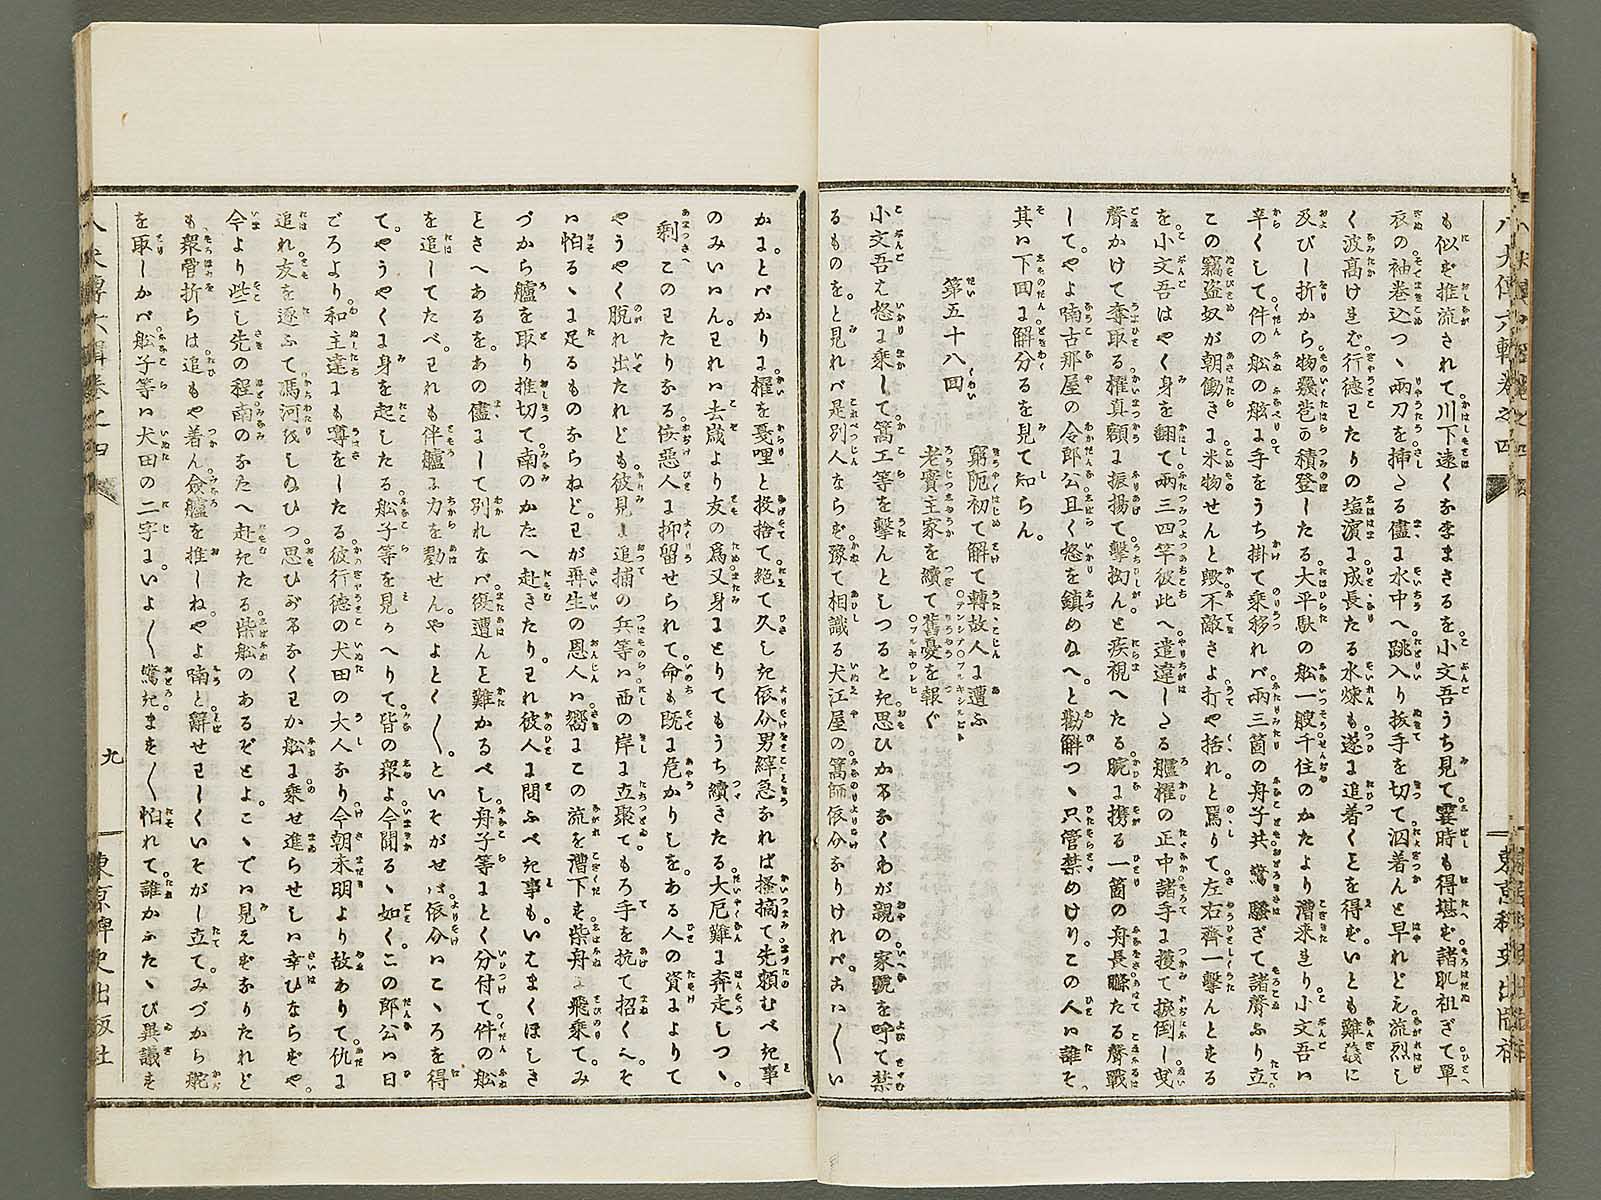 も似ず推流されて川下遠くなりまさるを小文吾うち見て霎時も得堪ず諸肌袒ぎて單
衣の袖巻込つゝ兩刀を挿たる儘に水中へ跳入り抜手を切て泅着んと早れども流烈し
く波髙ければ行徳わたりの塩濱に成長たる水煉も遂に追着くことを得ず。いとも難義に
及びし折から物幾苞の積登したる大平駄の舩一艘千住のかたより漕来れり小文吾は
辛くして。件の舩の舷に手をうち掛て乗移れバ兩三箇の舟子共。驚騒ぎて諸聲ふり立
この竊盗奴が朝働きに米物せんと欤不敵さよ打や括れ。と罵りて左右齊一撃んとする
を。小文吾はやく身を翻て兩三四竿彼此へ遣違したる艫櫂の正中諸手に攫て捩倒し曳
聲かけて奪取る櫂真額に振揚て撃拗んと疾視へたる腕に携る一箇の舟長縢たる聲戰
して。やよ喃古那屋の令郎公且く怒を鎮めぬへ。と勸解つゝ只管禁めけり。この人は誰そ
其は下回に解分るを見て知らん。
第五十八回
窮阨初て解て轉故人に遭ふ
老實主家を續て舊憂を報ぐ
小文吾え怒に乗して篙工等を撃んとしつるとき思ひかけなくわが親の家號を呼て禁
るものを。と見れバ是別人ならず豫て相識る犬江屋の篙師依介なりけれバ。こハ〳〵い
かに。とバかりに櫂を戞哩と投捨て。絶て久しき依介男緈急なれば搔摘て先頼むべき事
のみいはん。われは去歳より友の爲又身にとりてもうち續きたる。大厄難に奔走しつゝ。
剰このわたりなる佞惡人に抑留せられて。命も既に危かりしを。ある人の資によりて
やうやく脱れ出たれども。彼見よ追捕の兵等は西の岸に立聚て。もろ手を抗て招くぞ。そ
は怕るゝに足るものならねど。わが再生の恩人は嚮にこの流を漕下す。柴舟に飛乗て。み
づから艫を取り推切て。南のかたへ赴きたり。われ彼人に問ふべき事も。いはまくほしき
ときへあるを。あの儘にして別れなバ。復遭んと難かるべし。舟子等にとく分付て件の舩
を追してたべ。われも伴艫に力を勠せん。やよとく〳〵。といそがせば。依介はこゝろを得
て。やうやくに身を起したる舩子等を見かへりて。皆の衆よ今聞るゝ如く。この郎公は日
ごろより。和主達にも噂をしたる。彼行徳の犬田の大人なり今朝未明より故ありて。仇に
追れ友を逐ふて馮河をしぬひつ。思ひがけなくわか舩に乗せ進らせしは幸ひならずや。
今より些し先の程。南のかたへ赴きたる。柴舩のあるぞとよ。こゝでは見えずなりたれど
も衆骨折らは追もや着ん。僉艫を推しね。やよ喃と辭せわしくいそがし立て。みづから舵
を取しかバ。舩子等は犬田の二字に。いよ〳〵驚き。ます〳〵怕れて。誰かふたゝび異議を
八犬傳六輯巻之四
九
東京稗史出版社